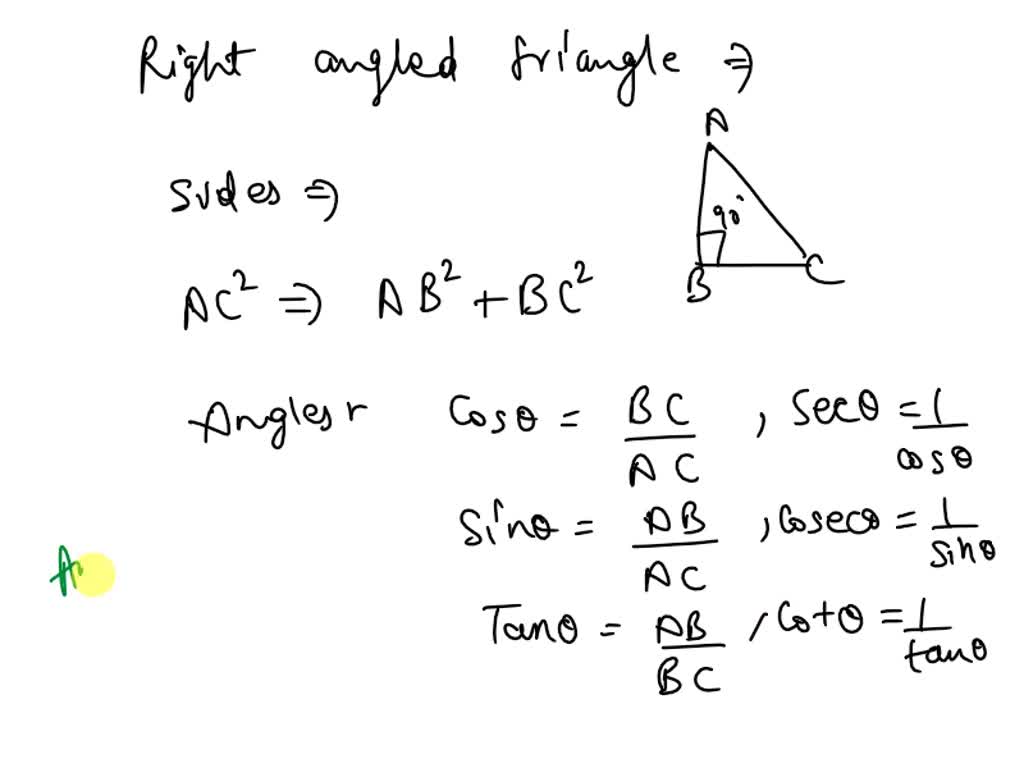 Right angled triangle ⇒
A
Sides ⇒
90°
B C
AC² ⇒ AB² + BC²
Angles r Cosθ = BC/AC , Secθ = 1/cosθ
Sinθ = AB/AC , Cosecθ = 1/sinθ
A
Tanθ = AB/BC , Cotθ = 1/tanθ